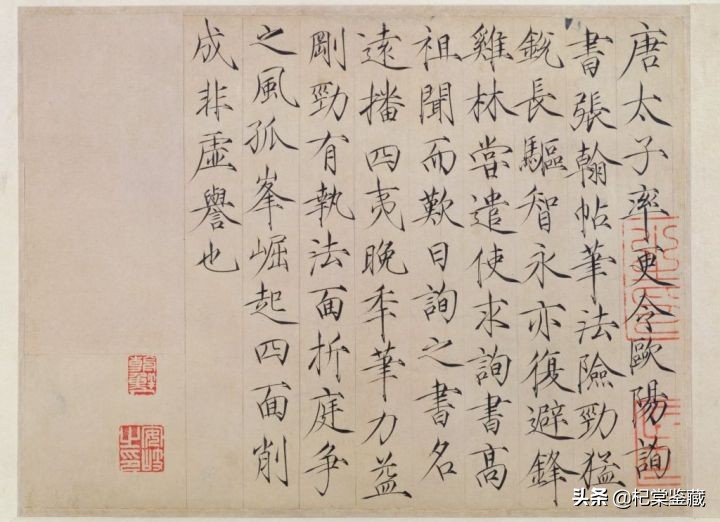 唐太子率更令歐陽詢
書張翰帖筆法險勁猛
銳長驅智永亦復避鋒
雞林嘗遣使求詢書高
祖聞而歎曰詢之書名
遠播四夷晚秊筆力益
剛勁有執法面折庭爭
之風孤峯崛起四面削
成非虛譽也
安岐之印
头条 @杞棠鉴藏